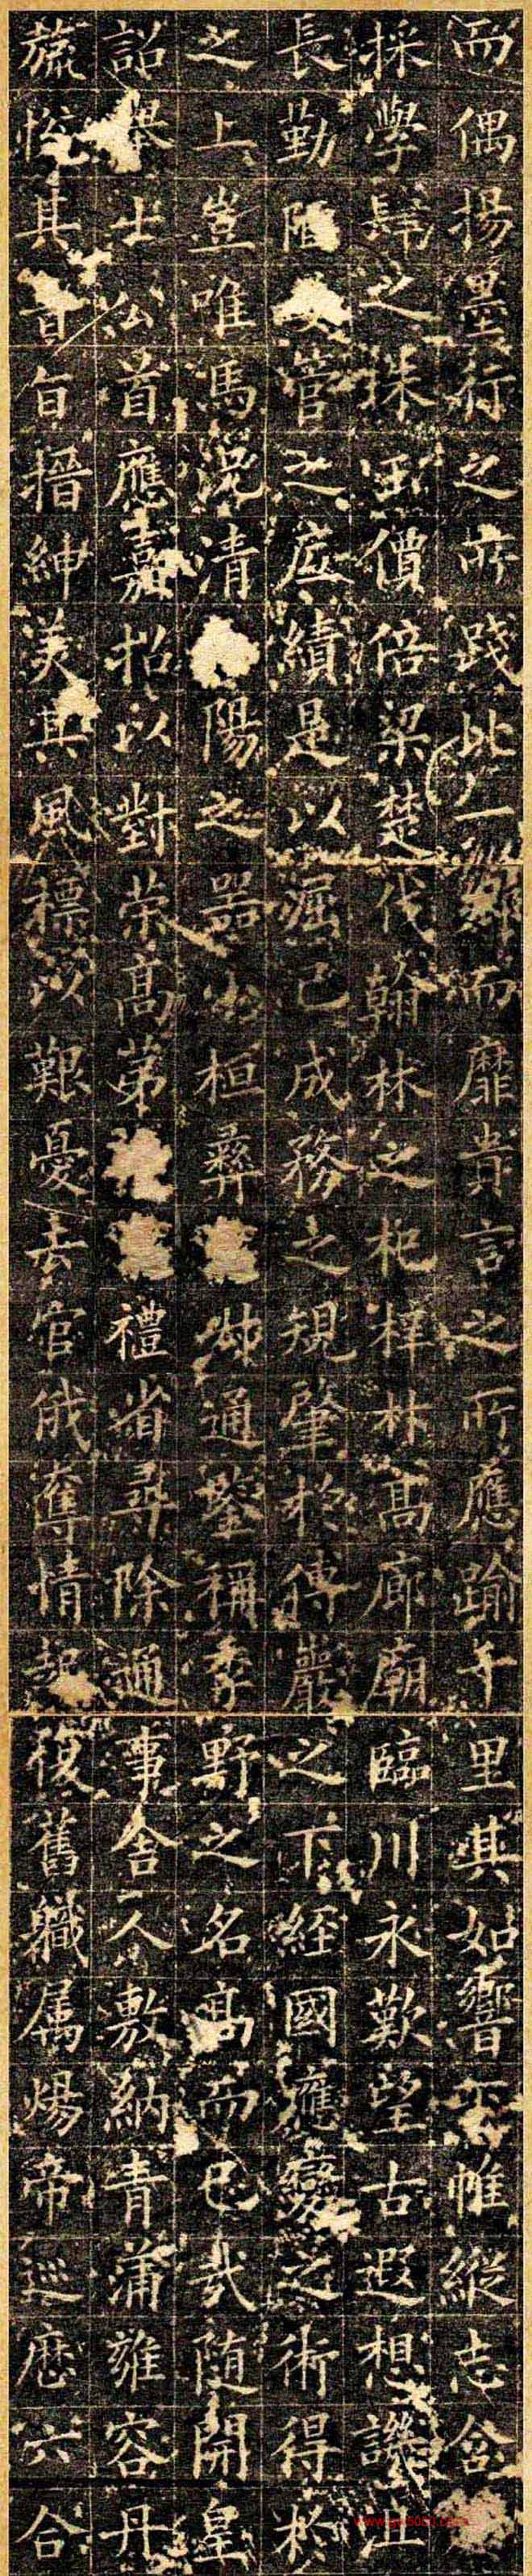 而偶揚墨行之所踐此一鄉而靡貴言之所應踰千里其如響不惟縱志含
採學肆之採寶價倍梁楚伐翰林之杞梓材高廊廟臨川永歎望古遐想譏世
長勤陋管之庶績是以屬己成務之規肇於傅巖之下經國應變之術得於
之上豈唯馬况清陽之器小桓彝此通鑒稱季野之名高而已哉隨開皇
詔舉士公首應嘉招以對榮高苐禮省尋除通事舍人敷納青蒲雍容丹
旒悅其音旨搢紳羡其風標以艱憂去官俄奪情起復舊職属煬帝巡歷六合